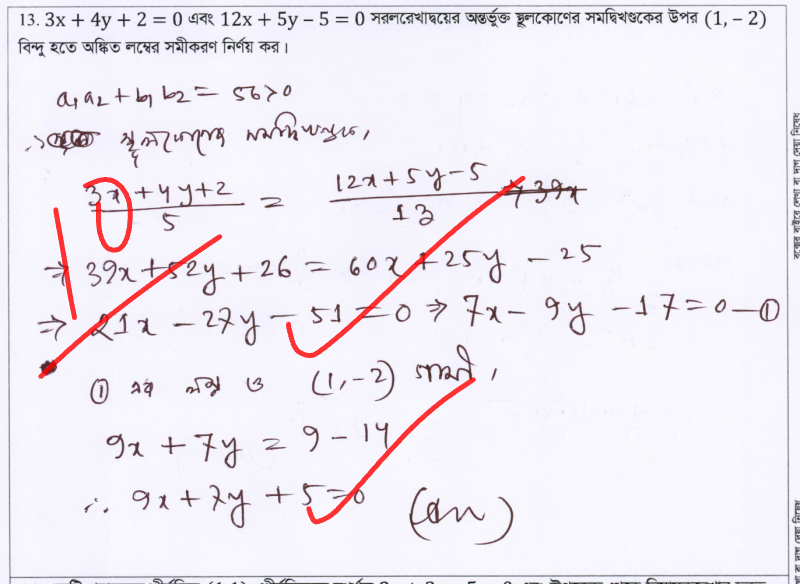 13. 3x + 4y + 2 = 0 এবং 12x + 5y – 5 = 0 সরলরেখাদ্বয়ের অন্তর্ভুক্ত স্থূলকোণের সমদ্বিখণ্ডকের উপর (1, – 2)
বিন্দু হতে অঙ্কিত লম্বের সমীকরণ নির্ণয় কর।
a₁a₂ + b₁b₂ = 56>0
∴ স্থূলকোণের সমদ্বিখণ্ডক,
(3x + 4y + 2)/5 = (12x + 5y – 5)/13
⇒ 39x + 52y + 26 = 60x + 25y – 25
⇒ 21x – 27y – 51 = 0 ⇒ 7x – 9y – 17 = 0 — ①
① এর লম্ব ও (1, –2) গামী,
9x + 7y = 9 – 14
∴ 9x + 7y + 5 = 0 (Ans)